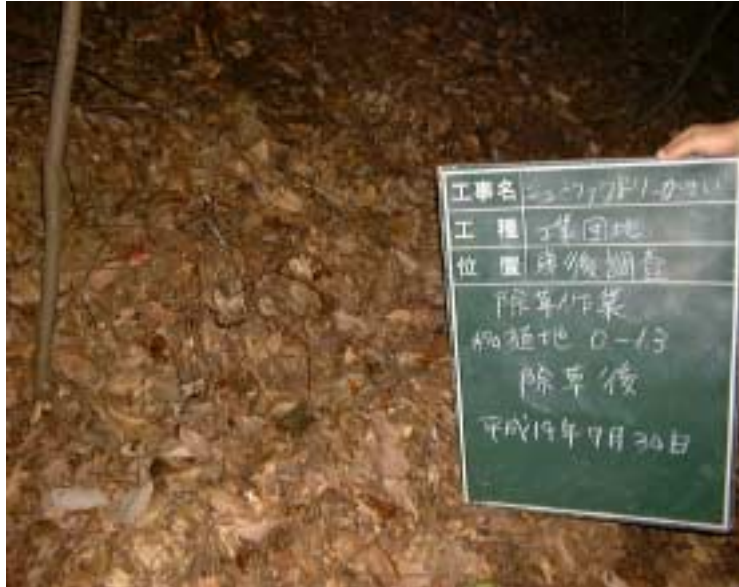 工事名 ニューファクトリーかさい
工種 工業団地
位置 事後調査
除草作業
移植地 C-13
除草後
平成19年7月30日